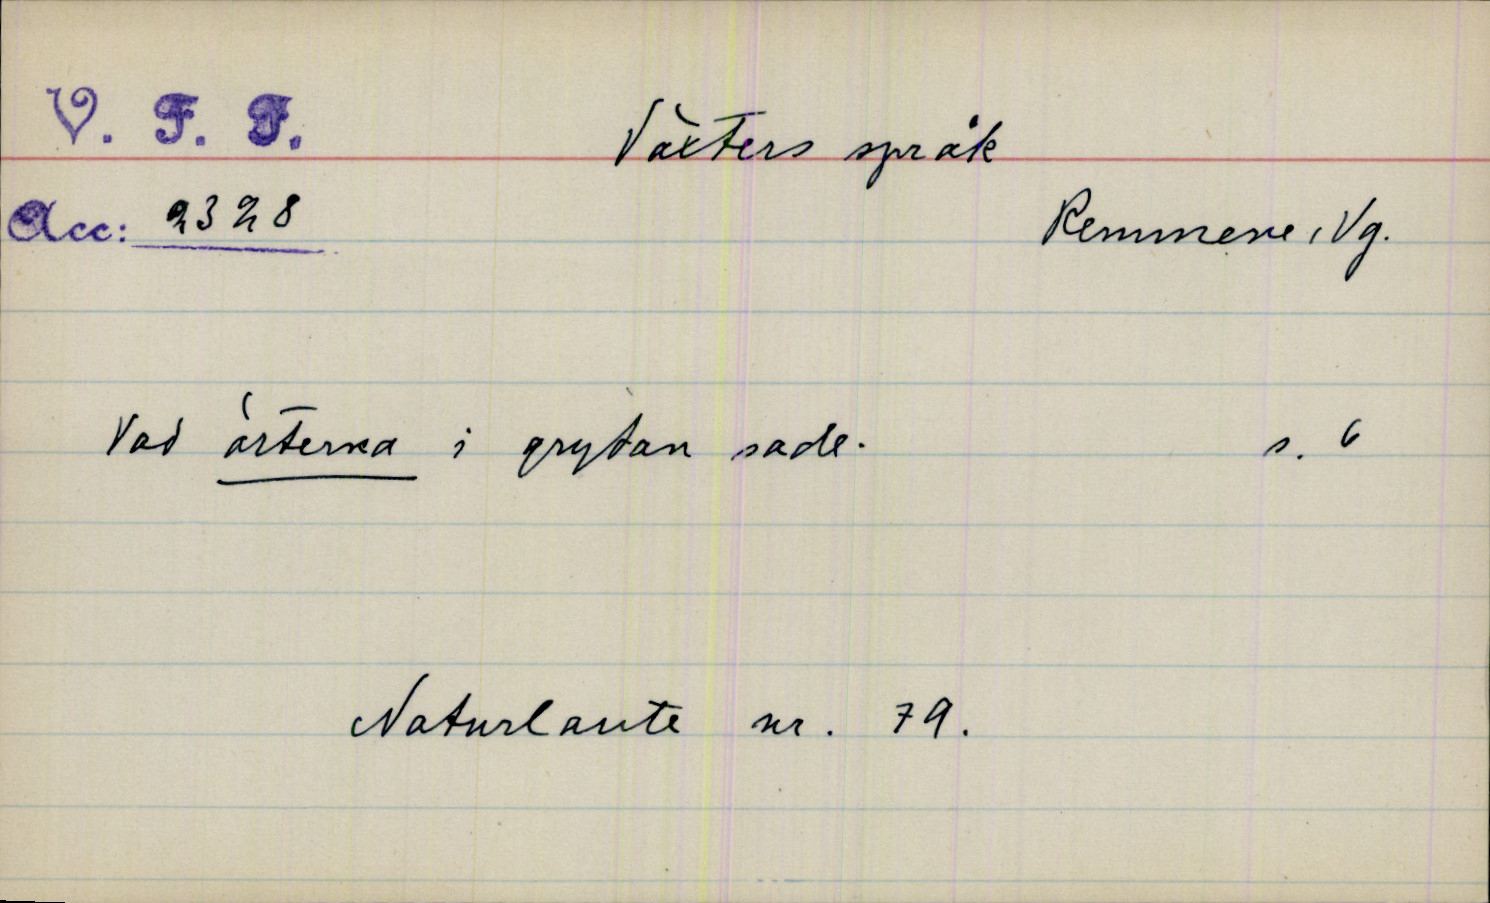 V. F. F.
Växters språk
Acc: 2328
Remmene, Vg.
Vad ärterna i grytan sade. s. 6
Naturlaute nr. 79.